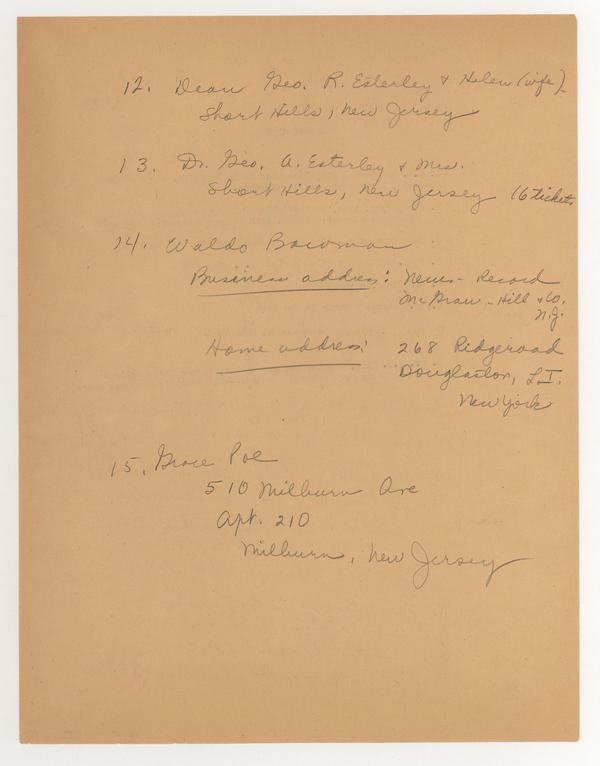 12. Dean Geo. R. Esterley & Helen (wife)
Short Hills, New Jersey
13. Dr. Geo. A. Esterley & Mrs.
Short Hills, New Jersey (6 tickets
14. Waldo Bowman
Business address: News-Record
McGraw-Hill & Co.
N.J.
Home address: 268 Ridgeroad
Douglaston, L.I.
New York
15. Grace Poe
510 Milburn Ave
Apt. 210
Milburn, New Jersey